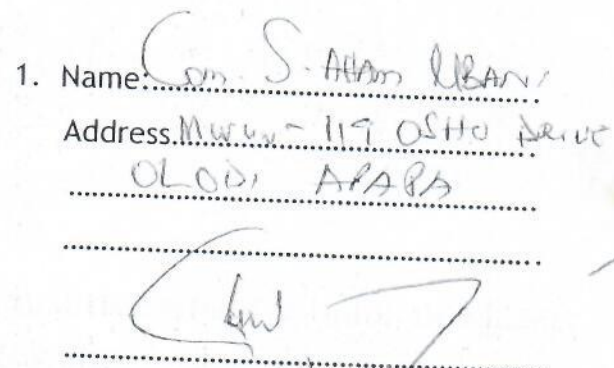 1. Name: Com. S. AHAM UBANI
Address MWUN - 119 OSHO DRIVE
OLODI APAPA